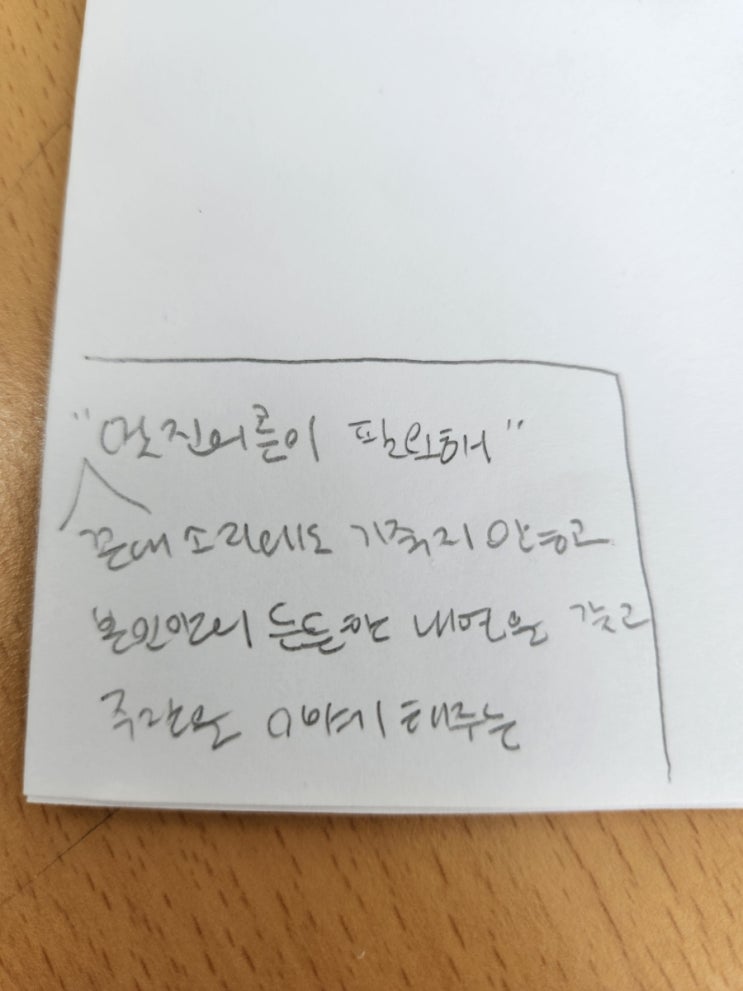 "멋진어른이 필요해"
꼰대 소리에도 기죽지 않고
본인만의 든든한 내면을 갖고
주관을 이야기 해주는